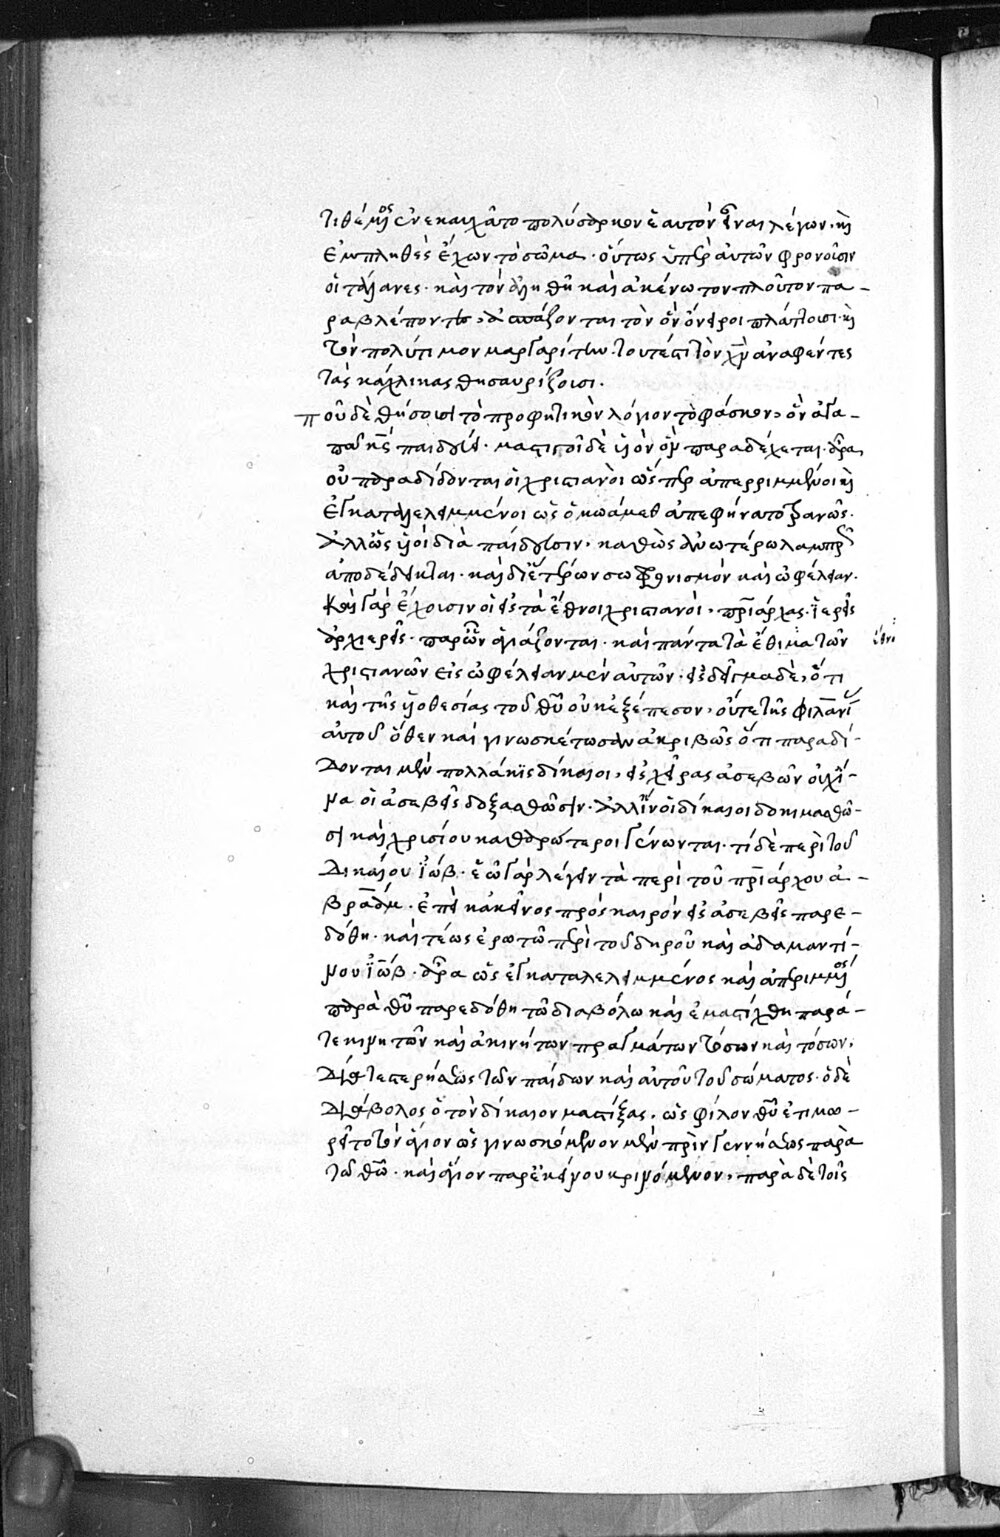 τιθέμενος ἐνεκαυχᾶτο πολύσαρκον ἑαυτὸν εἶναι λέγων· καὶ
ἐμπληθὲς ἔχων τὸ σῶμα· οὕτως ὑπὲρ αὐτῶν φρονοῦσιν
οἱ τάλανες· καὶ τὸν ἀληθῆ καὶ ἀκένωτον πλοῦτον πα-
ραβλέποντες, ἀσπάζονται τὸν ὃν ὄνειροι πλάττουσι· καὶ
τὸν πολύτιμον μαργαρίτην τουτέστι τὸν χ̅ν̅ ἀναφέντες
τὰς κάχληκας θησαυρίζουσι.
ποῦ δὲ θήσουσι τὸ προφητικὸν λόγιον τὸ φάσκον, ὃν ἀγα-
πᾷ κ̅ς̅ παιδεύει· μαστιγοῖ δὲ υἱὸν ὃν παραδέχεται. ἆρα
οὐ παραδίδονται οἱ χριστιανοὶ ὥσπερ ἀπερριμμένοι καὶ
ἐγκαταλελειμμένοι ὡς ὁ μωάμεθ ἀπεφήνατο φανῶς.
ἀλλ' ὡς υἱοὶ διὰ παίδευσιν, καθὼς ἀνωτέρω λαμπρῶς
ἀποδέδεικται· καὶ δι' ἑτέρων σωφρονισμὸν καὶ ὠφέλειαν.
καὶ γὰρ ἔχουσιν οἱ εἰς τὰ ἔθνη χριστιανοί, πριάρχας· ἱερεῖς
ἀρχιερεῖς· παρ' ὧν ἁγιάζονται· καὶ πάντα τὰ ἔθιμα τῶν
χριστιανῶν εἰς ὠφέλειαν μὲν αὐτῶν· εἰς δεῖγμα δὲ, ὅτι
καὶ τῆς υἱοθεσίας τοῦ θ̅υ̅ οὐκ ἐξέπεσον, οὔτε τῆς φιλανίας
αὐτοῦ ὅθεν καὶ γινωσκέτωσαν ἀκριβῶς ὅτι παραδί-
δονται μὲν πολλάκις δίκαιοι, εἰς χεῖρας ἀσεβῶν οὐχ ἵ-
να οἱ ἀσεβεῖς δοξασθῶσιν· ἀλλ' ἵν' οἱ δίκαιοι δοκιμασθῶ-
σι καὶ χρυσίου καθαρώτεροι γένωνται. τί δὲ περὶ τοῦ
δικαίου ἰώβ· ἐῶ γὰρ λέγειν τὰ περὶ τοῦ πριάρχου ἀ-
βραάμ· ἐπεὶ κἀκεῖνος πρὸς καιρὸν εἰς ἀσεβεῖς παρε-
δόθη· καὶ τέως ἐρωτῶ περὶ τοῦ σκληροῦ καὶ ἀδαμαντί-
νου ἰώβ· ἆρα ὡς ἐγκαταλελειμμένος καὶ ἀπεριμμένος
παρὰ θ̅υ̅ παρεδόθη τῶ διαβόλω καὶ ἐμαστίχθη παρά-
τε κινητῶν καὶ ἀκινήτων πραγμάτων τόσων καὶ τόσων·
διά τε στερήσεως τῶν παίδων καὶ αὐτοῦ τοῦ σώματος· ὁ δὲ
διάβολος ὁ τὸν δίκαιον μαστίξας, ὡς φίλον θ̅υ̅ ἐτιμω-
ρεῖτο τὸν ἅγιον ὡς γινωσκόμενον μὲν πρὶν γεννήσεως παρὰ
τῶ θ̅ῶ̅· καὶ ἅγιον παρ' ἐκείνου κρινόμενον, παρὰ δὲ τοῖς